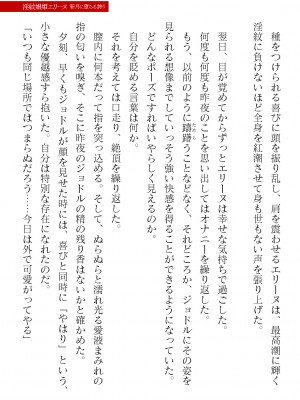 淫紋姫姫エリーヌ 新月に堕ちる誇り
　種をつけられる喜びに頭を振り乱し、肩を震わせるエリーヌは、最高潮に輝く
淫紋に負けないほど全身を紅潮させて身も世もない声を張り上げた。
　翌日、目が覚めてからずっとエリーヌは幸せな気持ちで過ごした。
　何度も何度も昨夜のことを思い出してはオナニーを繰り返した。
　もう、以前のように躊躇うことなどなく、それどころか、ジョドルにその姿を
見られる想像までしていっそう強い快感を得ることができるようになっていた。
　どんなポーズですればいやらしく見えるのか。
　自分を貶める言葉は何か。
　それを考えては口走り、絶頂を繰り返した。
　膣内に何本だって指を突っ込める。そして、ぬらぬらと濡れ光る愛液まみれの
指の匂いを嗅ぎ、そこに昨夜のジョドルの精の残り香はないかと確かめた。
　夕刻、早くもジョドルが顔を見せた時には、喜びと同時に『やはり』という、
小さな優越感すら抱いた。自分は特別な存在になれたのだ。
「いつも同じ場所ではつまらぬだろう……今日は外で可愛がってやる」